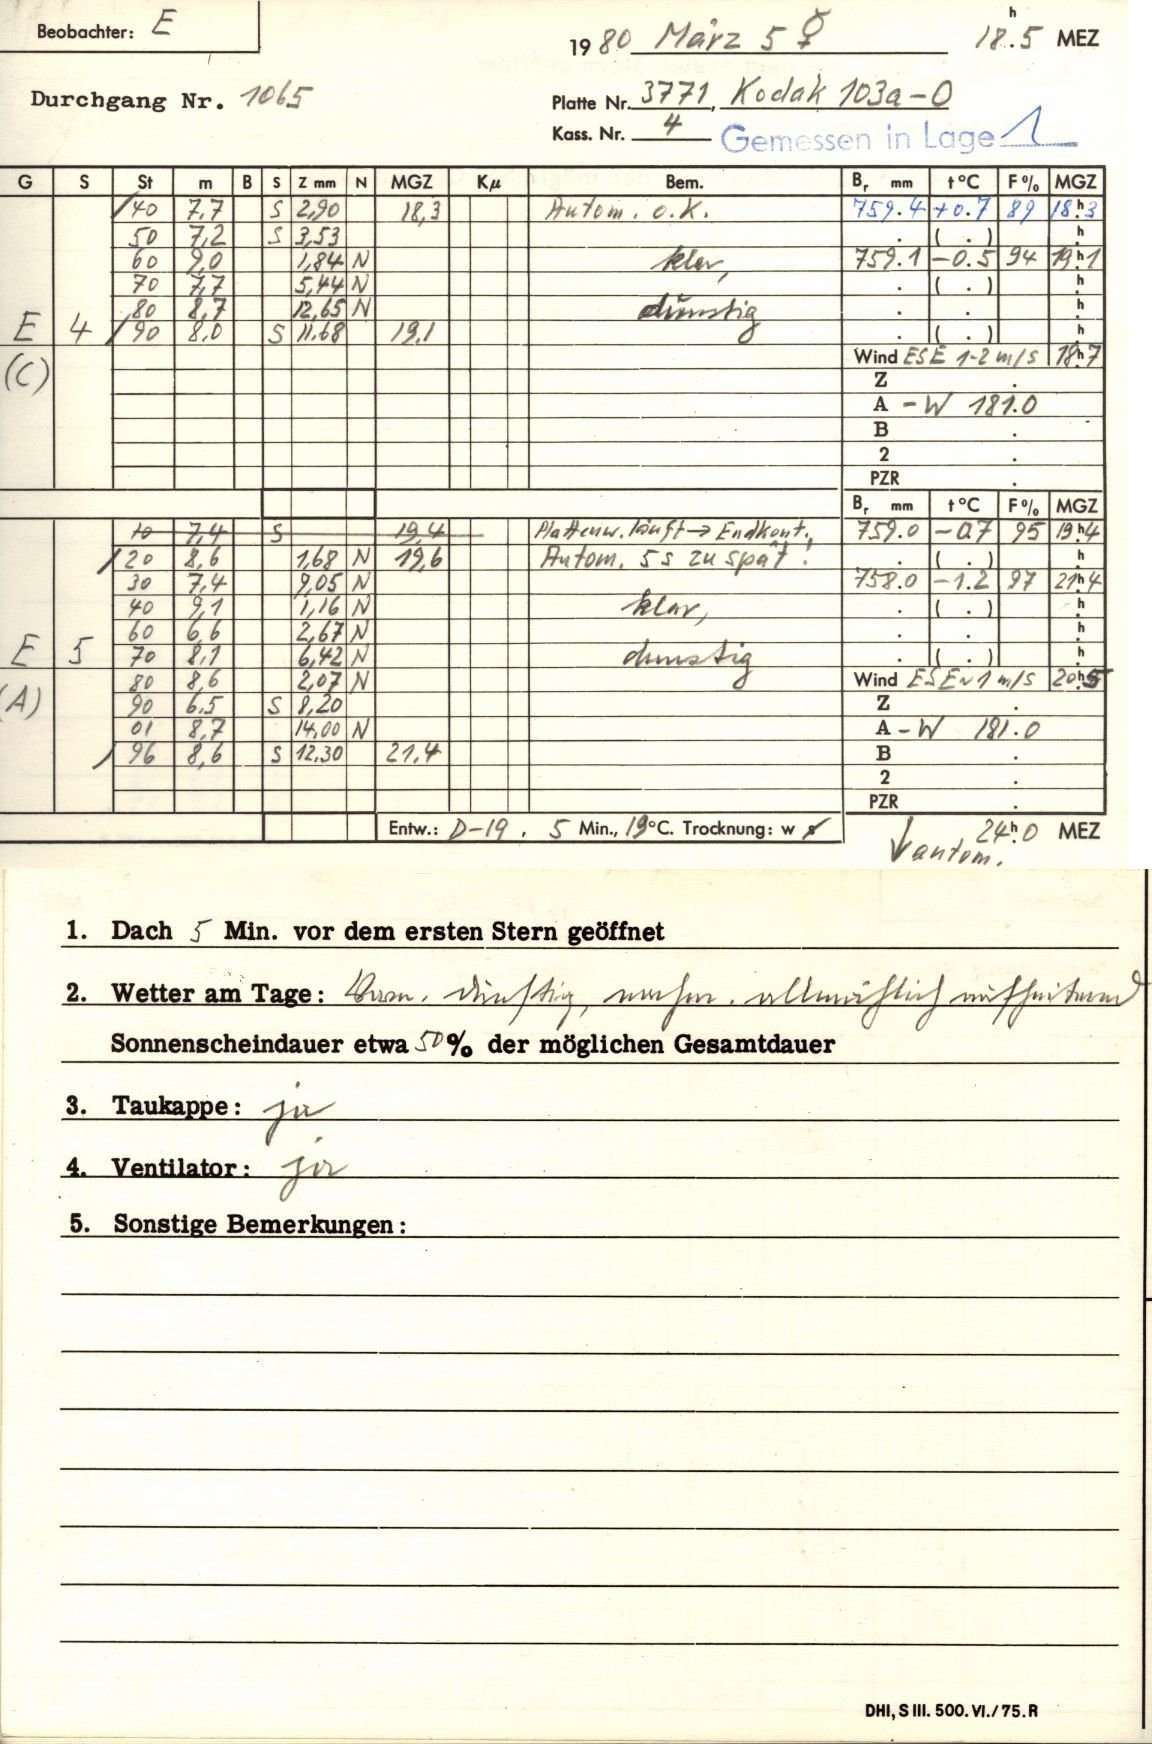 Beobachter: E
1980 März 5 ☿ 18.h5 MEZ
Durchgang Nr. 1065
Platte Nr. 3771, Kodak 103a-O
Kass. Nr. 4 Gemessen in Lage 1
G S St m B S Z mm N MGZ Kμ Bem. Br mm t°C F% MGZ
40 7,7 S 2,90 18,3 Autom. o.K. 759.4 +0.7 89 18.h3
50 7,2 S 3,53 . ( . ) .h
60 9,0 1,84 N klar, 759.1 -0.5 94 19.h1
70 7,7 5,44 N . ( . ) .h
80 8,7 12,65 N dunstig . . .h
E 4 90 8,0 S 11,68 19,1 . ( . ) .h
(C) Wind ESE 1-2 m/s 18.h7
Z .
A - W 181.0
B .
2 .
PZR .
Br mm t°C F% MGZ
10 7,4 S 19,4 Plattenw. läuft → Endkont. 759.0 -0.7 95 19.h4
20 8,6 1,68 N 19,6 Autom. 5 s zu spät! . ( . ) .h
30 7,4 9,05 N 758.0 -1.2 97 21.h4
40 9,1 1,16 N klar, . ( . ) .h
60 6,6 2,67 N . . .h
E 5 70 8,1 6,42 N dunstig . ( . ) .h
(A) 80 8,6 2,07 N Wind ESE ~1 m/s 20.h5
90 6,5 S 8,20 Z .
01 8,7 14,00 N A - W 181.0
96 8,6 S 12,30 21,4 B .
2 .
PZR .
Entw.: D-19. 5 Min., 19°C. Trocknung: w 24.h0 MEZ
autom.
1. Dach 5 Min. vor dem ersten Stern geöffnet
2. Wetter am Tage: Vorm. dunstig, nachm. allmählich aufheiternd
Sonnenscheindauer etwa 50% der möglichen Gesamtdauer
3. Taukappe: ja
4. Ventilator: ja
5. Sonstige Bemerkungen:
DHI, S III. 500. VI./75. R